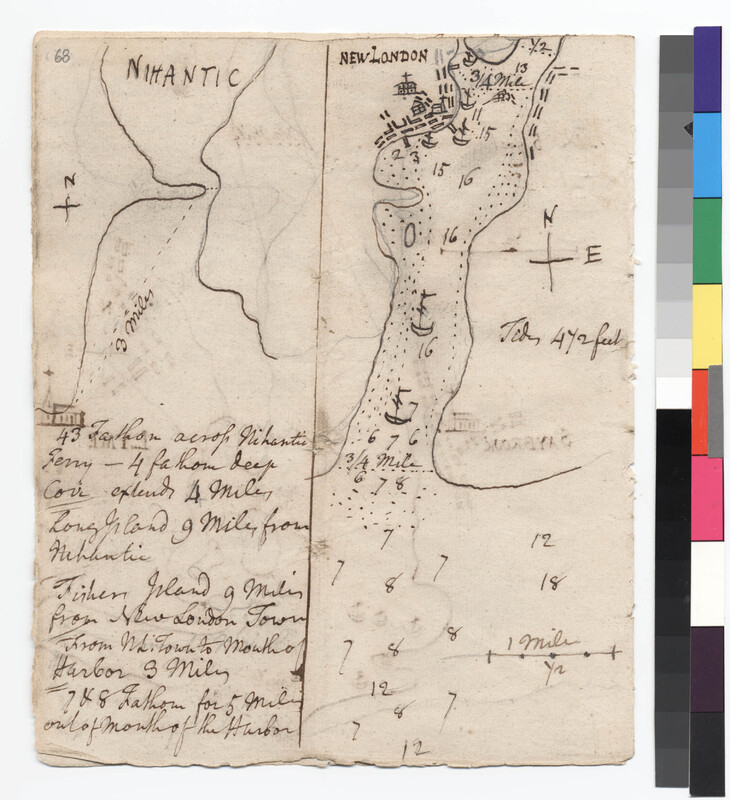 68
NIHANTIC
N
3 Miles
43 Fathom acroſs Nihantic
Ferry — 4 fathom deep
Cove extends 4 Miles
Long Iſland 9 Miles from
Nihantic
Fishers Iſland 9 Miles
from New London Town
From N L: Town to Mouth of
Harbor 3 Miles
7 & 8 Fathom for 5 Miles
out of Mouth of the Harbor
NEW LONDON
1/2
13
3/4 Mile
11
15
2 3
15
16
16
N
E
Tides 4 1/2 feet
16
7
6 7 6
3/4 Mile
6 7 8
7
12
7 8 7
18
7 8 8
1 Mile
1/2
12
7 8 7
12
SAYBROOK